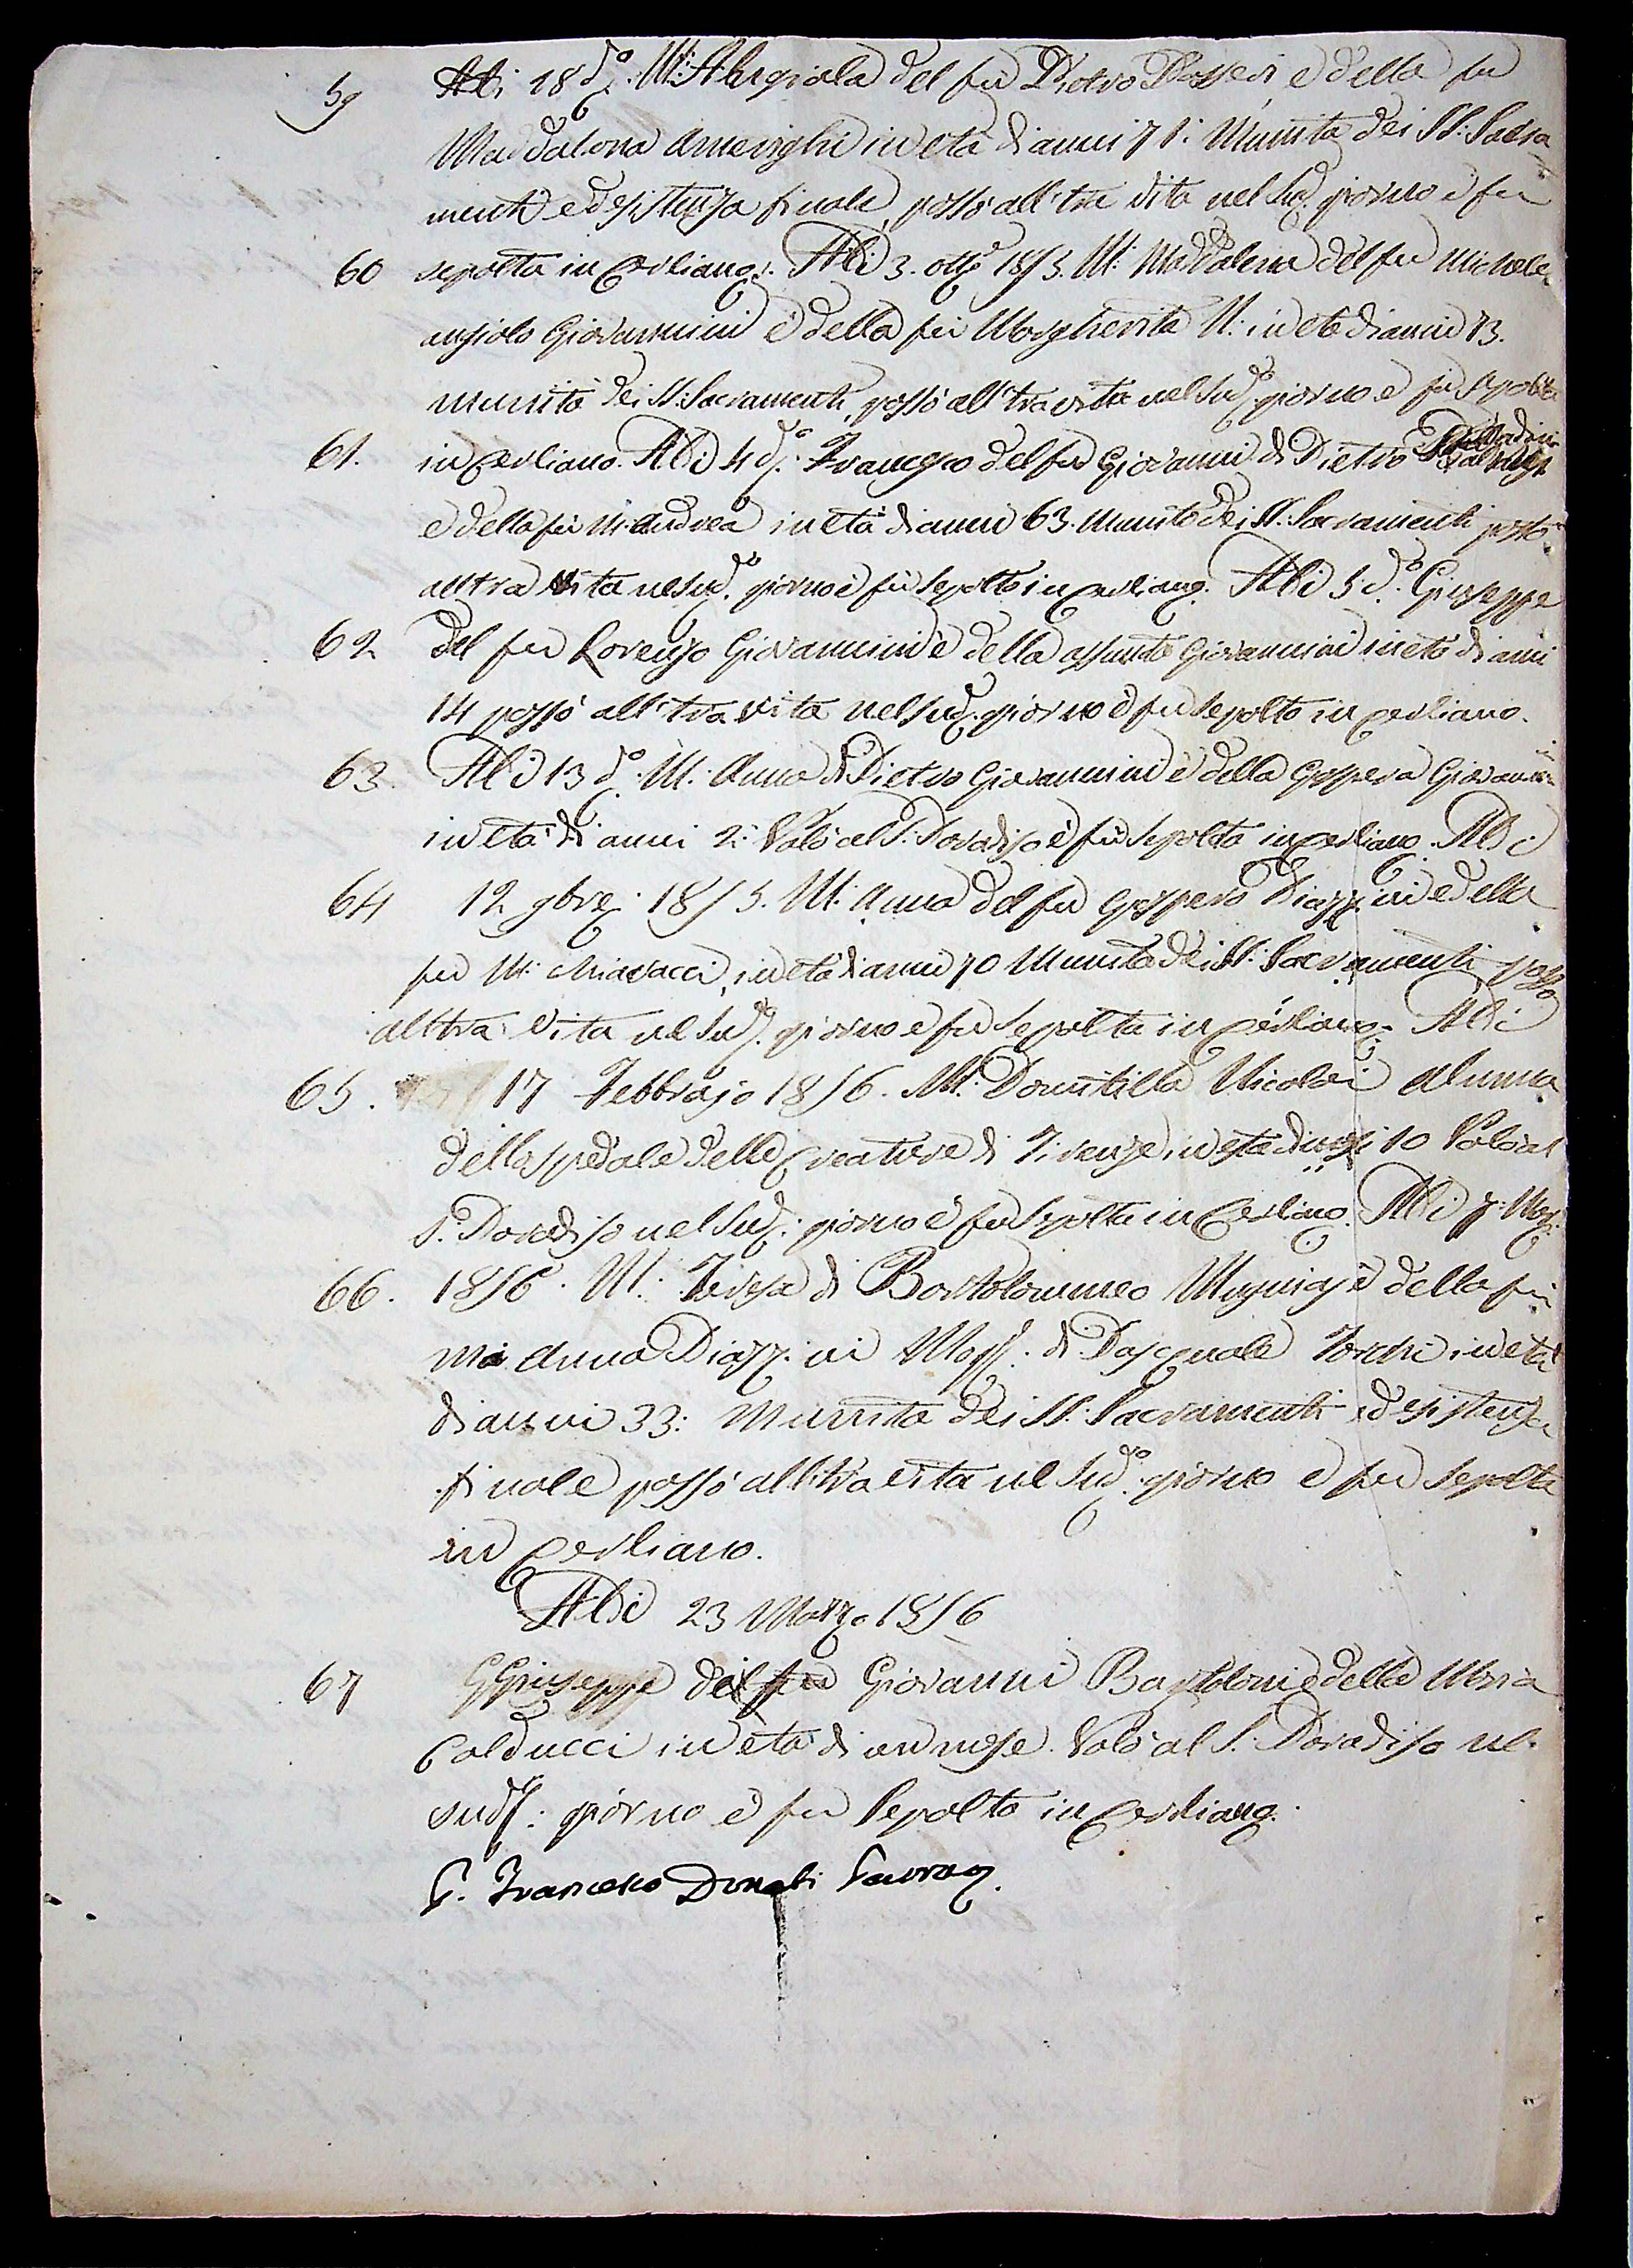 59 Adi 18 do. M: A: Angiola del fu Pietro Passeri e della fu
Maddalena Amerighi in età di anni 71. Munita dei SS: Sacra
menti ed esistenza finale, passò all'tra vita nel Sud. giorno e fu
60 sepolta in Cerliano. Adi 3. otte 1815. M: Maddalena del fu Michele
angiolo Giovannini e della fu Margherita N: in età di anni 73.
munita dei SS: Sacramenti, passò all'tra vita nel Sudo. giorno e fu sepolta
61. in Cerliano. Adi 4 do. Francesco del fu Giovanni di Pietro
e della fu M: Andrea in età di anni 63. munito dei SS: Sacramenti passò
alltra vita nel Sudo. giorno e fu sepolto in Cerliano. Adi 5 do. Giuseppe
62 del fu Lorenzo Giovannini e della assunta Giovannini in età di anni
14 passò all'tra vita nel Sud. giorno e fu sepolto in Cerliano.
63. Adi 13 do. M: Anna di Pietro Giovannini e della Gaspera Giovannini
in età di anni 2: Volò al S: Paradiso e fu sepolta in Cerliano. Adi
64 12 9bre. 1815. M: Anna del fu Gaspero Piazzini e della
fu M: Chiavacci, in età di anni 70 Munita dei SS: Sacramenti passò
alltra vita nel Sud. giorno e fu sepolta in Cerliano. Adi
65. 17 Febbrajo 1816. M: Domitilla Nicolai Alunna
dello spedale delle Creature di Firenze, in età di mesi 10 Volò al
S: Paradiso nel Sud: giorno e fu sepolta in Cerliano. Adi 7: Mar:
66. 1816. M: Teresa di Bartolommeo Mugniaj e della fu
Ma Anna Piazzini Mog: di Pasquale Torchi in età
di anni 33: Munita dei SS: Sacramenti ed esistenza
finale passò all'tra vita nel Sudo. giorno e fu sepolta
in Cerliano.
Adi 23 Marzo 1816
67 Giuseppe del fu Giovanni Bartoloni e della Maria
Calducci in età di un mese. Volò al S: Paradiso nel
sud: giorno e fu Sepolto in Cerliano.
P. Francesco Donati Curato